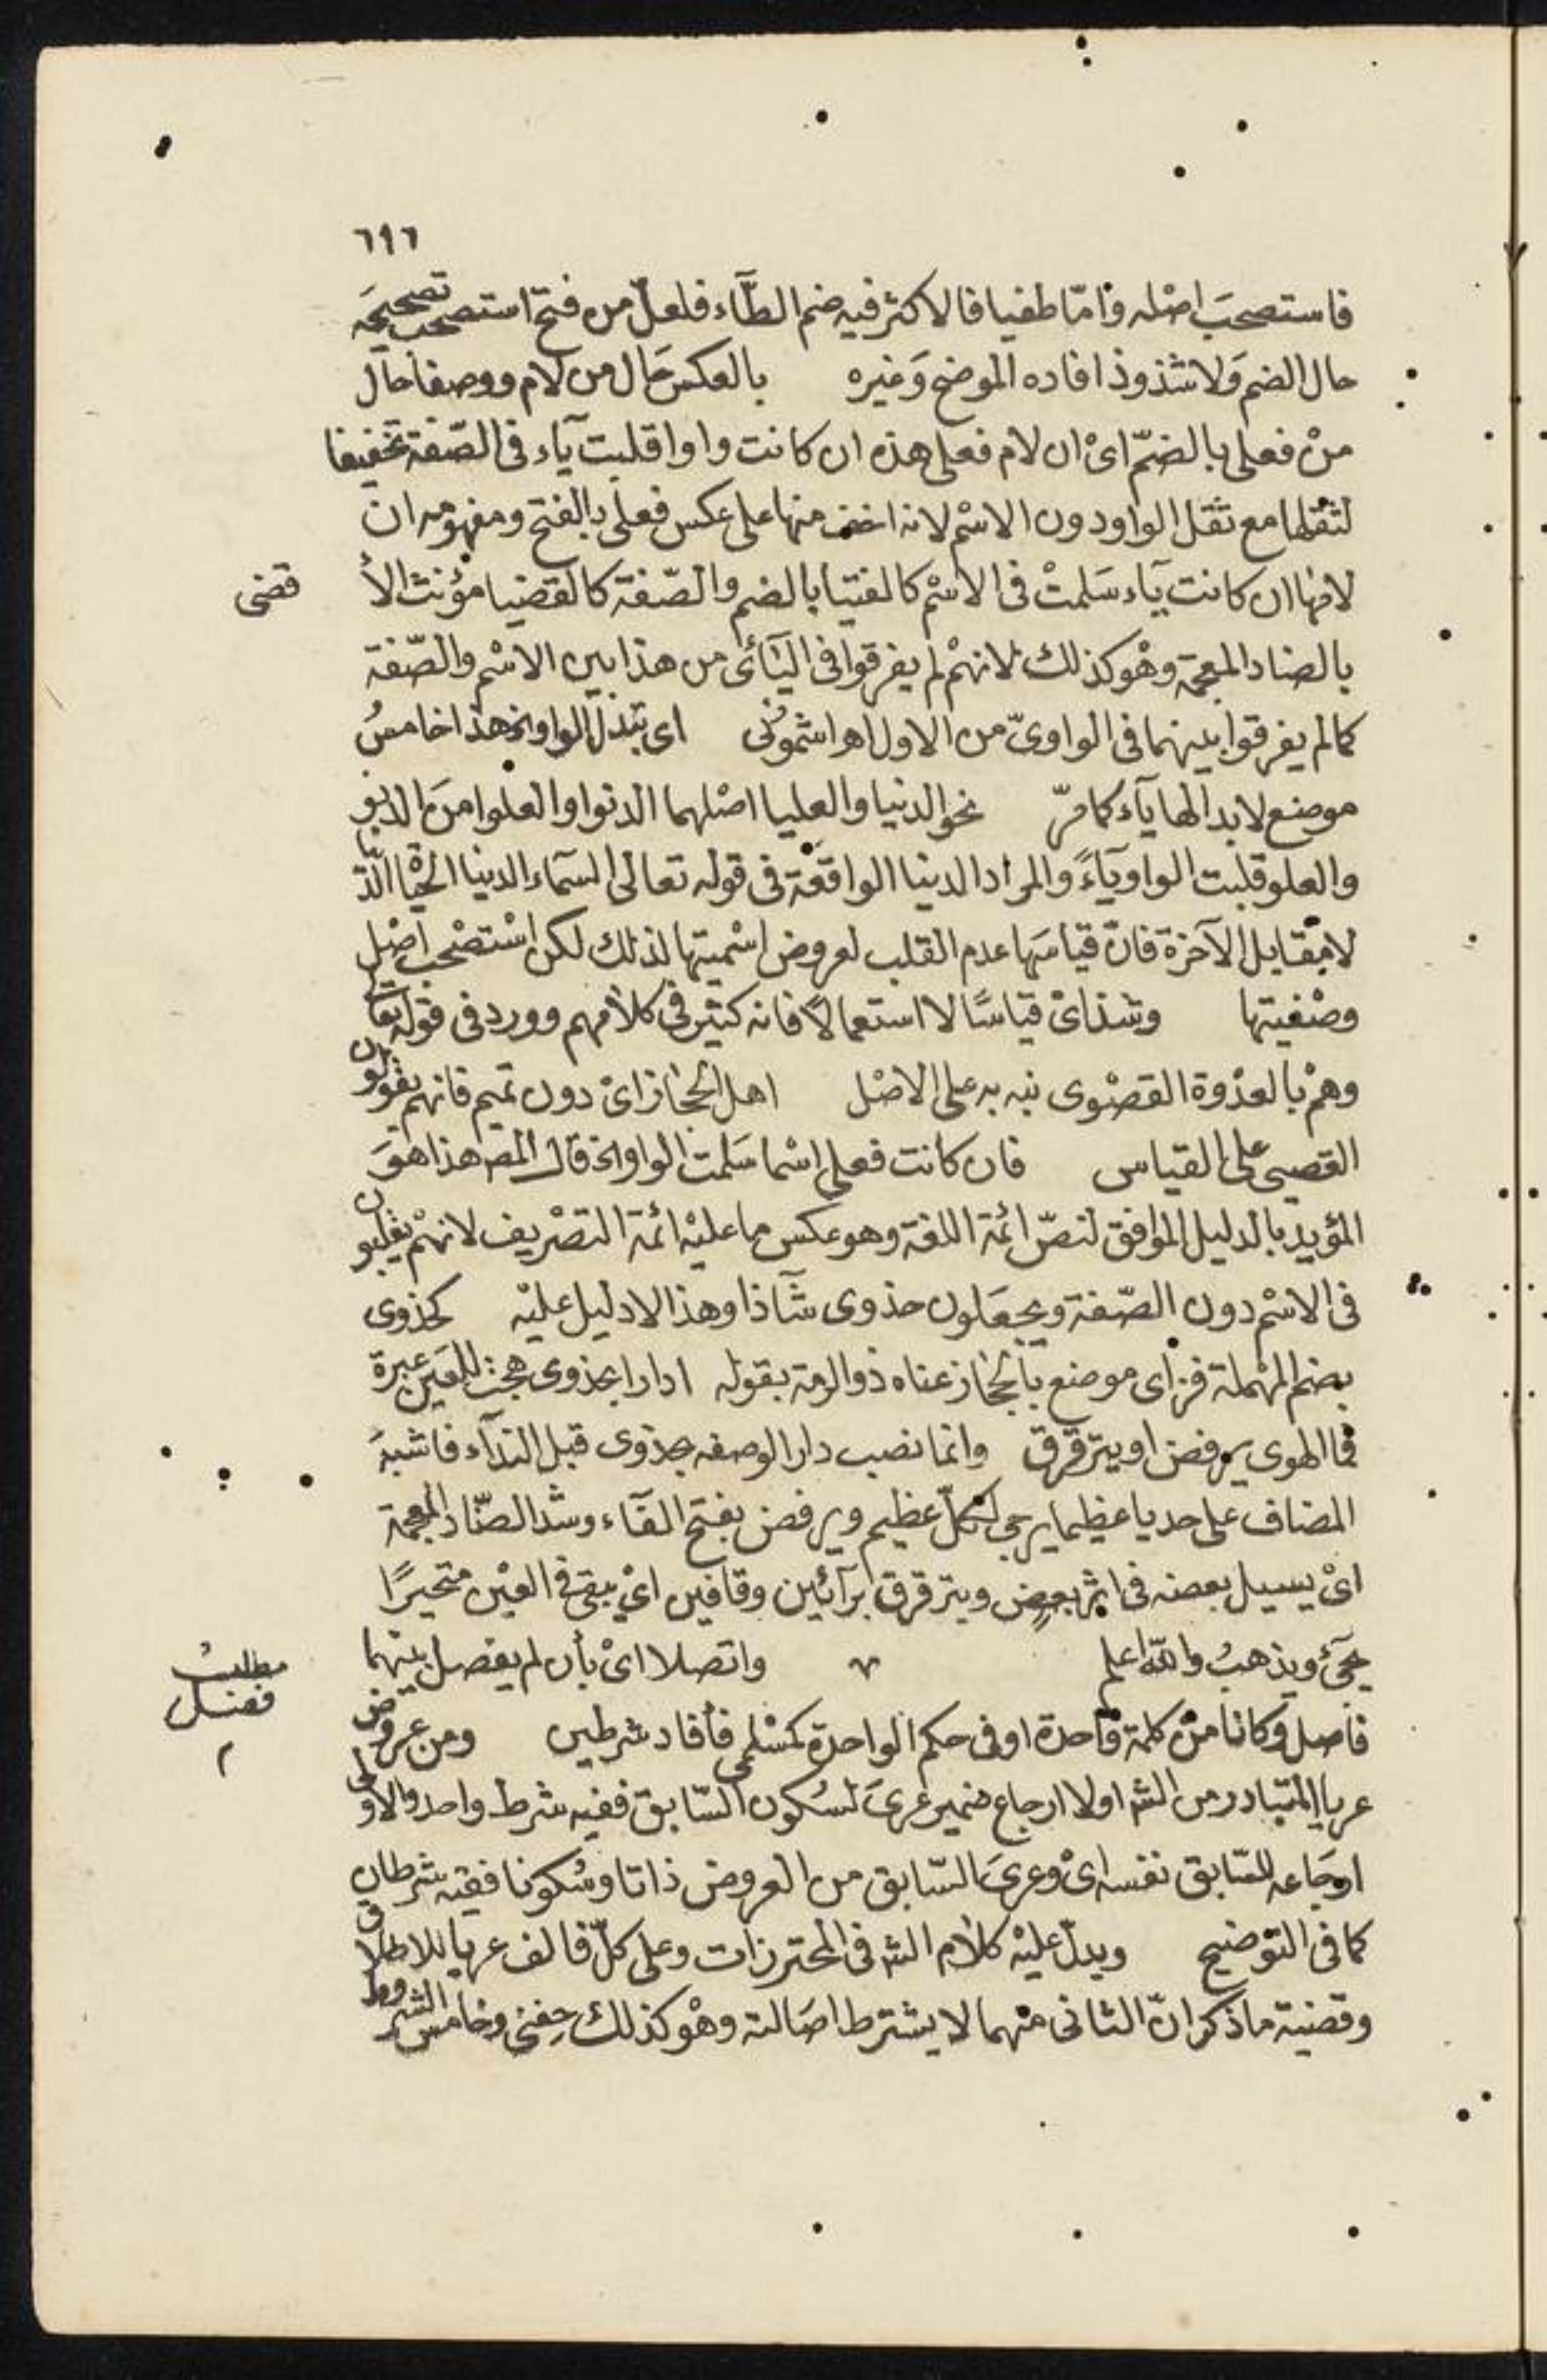 ٦١٦
فاستصحبَ اصْله وامّا طغيا فالاكثر فيه ضم الطّآء فلعلّ من فتح استصحب تصحيحَه
حال الضم وَلا شذوذ افاده الموضح وَغيره بالعكس حَال من لام ووصفا حال
منْ فعلى بالضمّ اىْ ان لام فعلى هذه ان كانت واوا قلبت يآء فى الصّفة تخفيفا
لثقلها مع ثقل الواو دون الاسْم لانه اخف منها على عكس فعلى بالفتح ومفهومه ان
لامها ان كانت يآء سَلمتْ فى الاسْم كالفتيا بالضم والصّفة كالقضيا مؤنث الأ
قضى
بالضاد المعجمة وهْو كذلك لانهمْ لم يفرقوا فى اليآئى من هذا بين الاسْم والصّفة
كما لم يفرقوا بينهما فى الواوىّ من الاول اهـ اشمونى اى تبدل الواو الخ هذا خامسُ
موضع لابدالها يآء كما مرّ نحو الدنيا والعليا اصْلهما الدنوا والعلوا منَ الدنو
والعلو قلبت الواو يآءً والمراد الدنيا الواقعَة فى قوله تعالى السمآء الدنيا الحيْا الّذ
لامقابل الآخرة فانّ قياسَها عدم القلب لعروض اسْميتها لذلك لكن اسْتصْحب اصْل
وصْفيتها وشذ اىْ قياسًا لا استعمالا فانه كثير فى كلامهم وورد فى قوله تعا
وهمْ بالعدْوة القصْوى نبه به على الاصْل اهل الحجاز اىْ دون تميم فانهم يقولون
القصيى على القياس فان كانت فعلى اسْما سَلمت الواو الخ قال المص هذا هوَ
المؤيد بالدليل الموافق لنصّ ائمة اللغة وهو عكس ما عليْه ائمة التصْريف لانهمْ يقلبون
فى الاسْم دون الصّفة ويجعَلون حذوى شآذا وهذا لا دليل عليْه كحذوى
بضم المهْملة فزاى موضع بالحجاز عناه ذو الرمة بقوله ادارا بحذوى هجت للعَين عبرة
فمآ الهوى يرفض او يترقرق وانما نصب دارا لوصفه بحذوى قبل الندآء فاشبهَ
المضاف على حد يا عظيما يرجى لكلّ عظيم ويرفض بفتح الفآء وشد الضّاد المعجمة
اىْ يسيل بعضه فى اثر بعض ويترقرق برآئين وقافين اىْ يبقى فى العيْن متحيرًا
يجىْ ويذهبُ والله اعلم واتصلا اىْ بأن لم يفصل بينهما
مطلبُ
فصل
فاصل وكانا منْ كلمة وَاحدة او فى حكم الواحدة كمسْلمى فأفاد شرطين ومن عروض
عريا المتبادر من الشـ اولا ارجاع ضمير عرىَ لسُكون السّابق ففيه شرط واحد والاولى
ارجَاعه للسّابق نفسه اىْ وعرىَ السّابق من العروض ذاتا وسُكونا ففيه شرطان
كما فى التوضيح ويدلّ عليْه كلام الشـ فى المحترزات وعلى كلّ فالف عريا للاطلاق
وقضية ما ذكر انّ الثانى منهما لا يشترط اصَالته وهْو كذلك حفنى وخامس الشروط